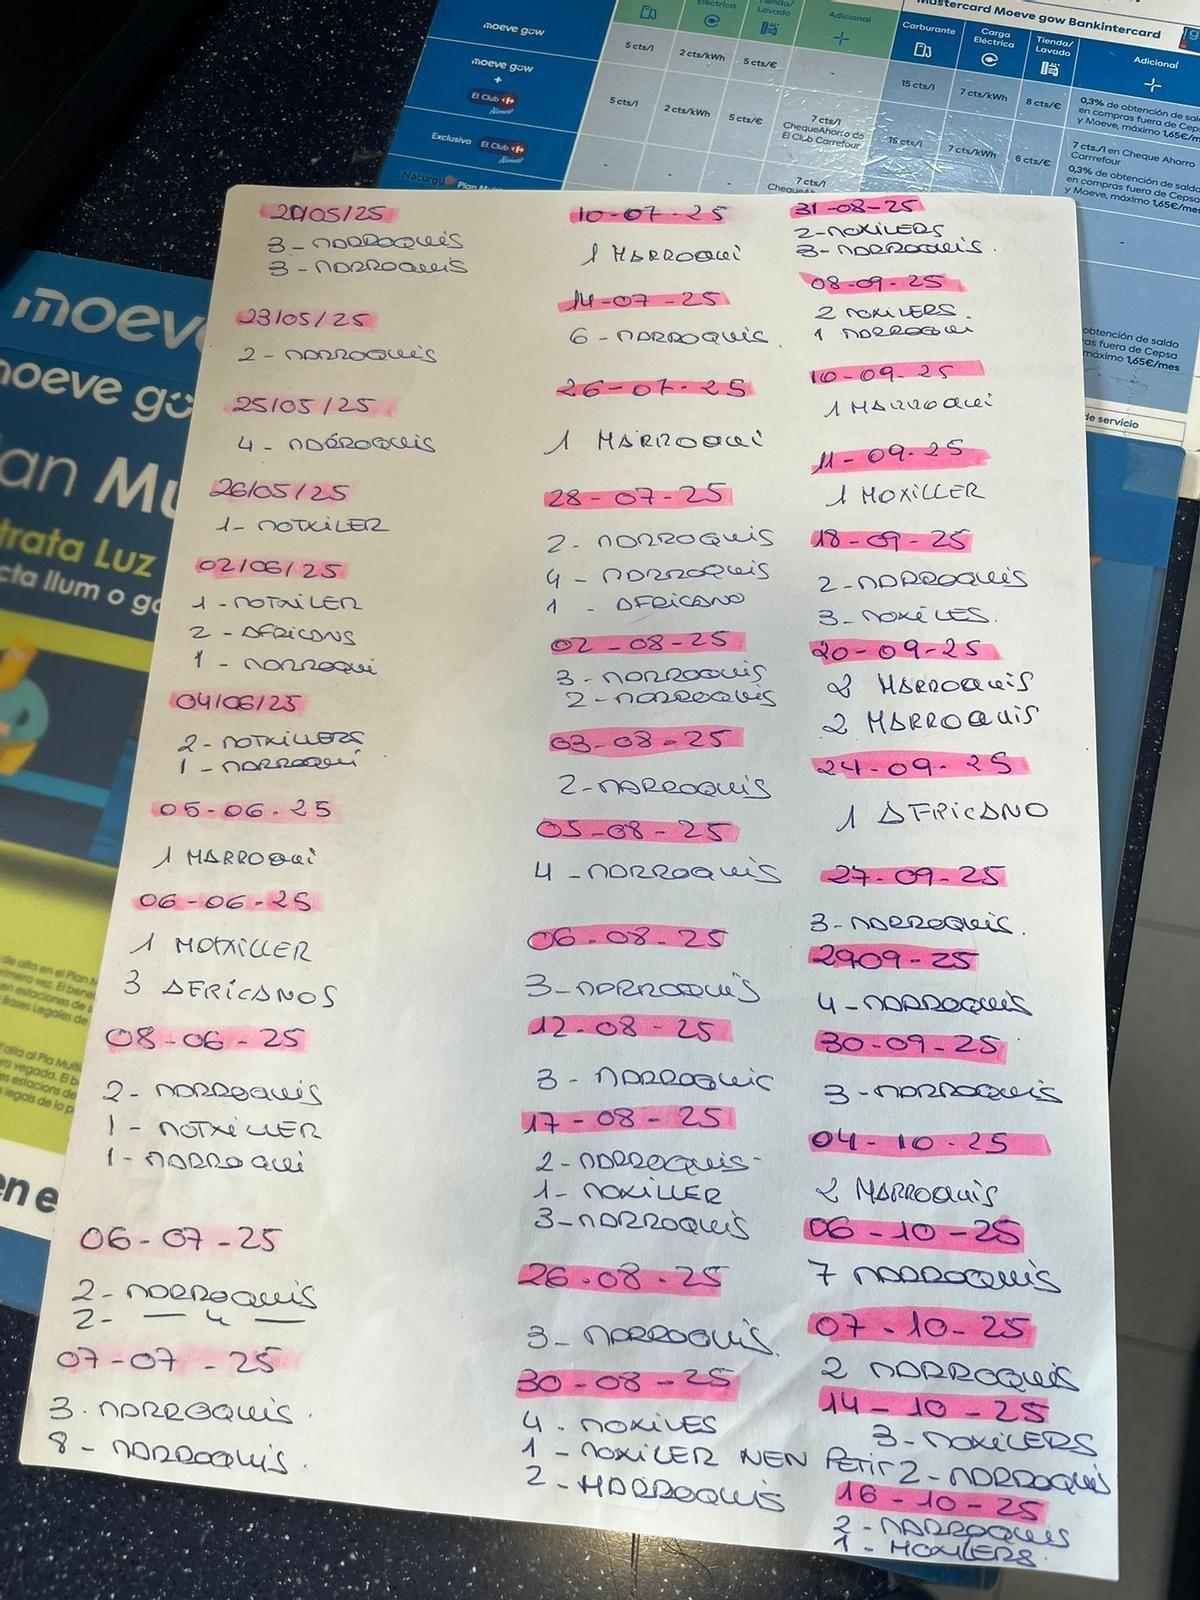 moeve gow
moeve gow
+
El Club
Exclusivo El Club
Eléctrica
Tienda/
Lavado
Adicional
5 cts/l
2 cts/kWh
5 cts/€
-
5 cts/l
2 cts/kWh
5 cts/€
7 cts/l
ChequeAhorro de
El Club Carrefour
-
-
7 cts/l
Mastercard Moeve gow Bankintercard
Carburante
Carga
Eléctrica
Tienda/
Lavado
Adicional
15 cts/l
7 cts/kWh
8 cts/€
0,3% de obtención de saldo
en compras fuera de Cepsa
y Moeve, máximo 1,65€/mes
15 cts/l
7 cts/kWh
8 cts/€
7 cts./l en Cheque Ahorro
Carrrefour
0,3% de obtención de saldo
en compras fuera de Cepsa
y Moeve, máximo 1,65€/mes
obtención de saldo
as fuera de Cepsa
máximo 1,65€/mes
de servicio
moeve
noeve go
an Mu
trata Luz
cta llum o ga
en e
/05/25
3-MARROQUIS
3-MARROQUIS
23/05/25
2-MARROQUIS
25/05/25
4-MARROQUIS
26/05/25
1-MOTXILER
02/06/25
1-MOTXILER
2-AFRICANS
1-MARROQUI
04/06/25
2-MOTXILLERS
1-MARROQUI
05-06-25
1 MARROQUI
06-06-25
1 MOTXILLER
3 AFRICANOS
08-06-25
2-MARROQUIS
1-MOTXILLER
1-MARROQUI
06-07-25
2-MARROQUIS
2- — 4 —
07-07-25
3-MARROQUIS.
8-MARROQUIS.
10-07-25
1 MARROQUI
14-07-25
6-MARROQUIS.
26-07-25
1 MARROQUI
28-07-25
2-MARROQUIS
4-MARROQUIS
1-AFRICANO
02-08-25
3-MARROQUIS
2-MARROQUIS
03-08-25
2-MARROQUIS
05-08-25
4-MARROQUIS
06-08-25
3-MARROQUIS
12-08-25
3-MARROQUIS
17-08-25
2-MARROQUIS-
1-MOXILLER
3-MARROQUIS
26-08-25
3-MARROQUIS.
30-08-25
4-MOXILES
1-MOXILER NEN PETIT
2-MARROQUIS
31-08-25
2-MOXILERS
3-MARROQUIS.
08-09-25
2 MOXILERS.
1 MARROQUI
10-09-25
1 MARROQUI
11-09-25
1 MOXILLER
18-09-25
2-MARROQUIS
3-MOXILES.
20-09-25
2 MARROQUIS
2 MARROQUIS
24-09-25
1 AFRICANO
27-09-25
3-MARROQUIS.
2909-25
4-MARROQUIS
30-09-25
3-MARROQUIS
04-10-25
2 MARROQUIS
06-10-25
7 MARROQUIS
07-10-25
2 MARROQUIS
14-10-25
3-MOXILERS
2-MARROQUIS
16-10-25
2-MARROQUIS
1-MOXILERS.